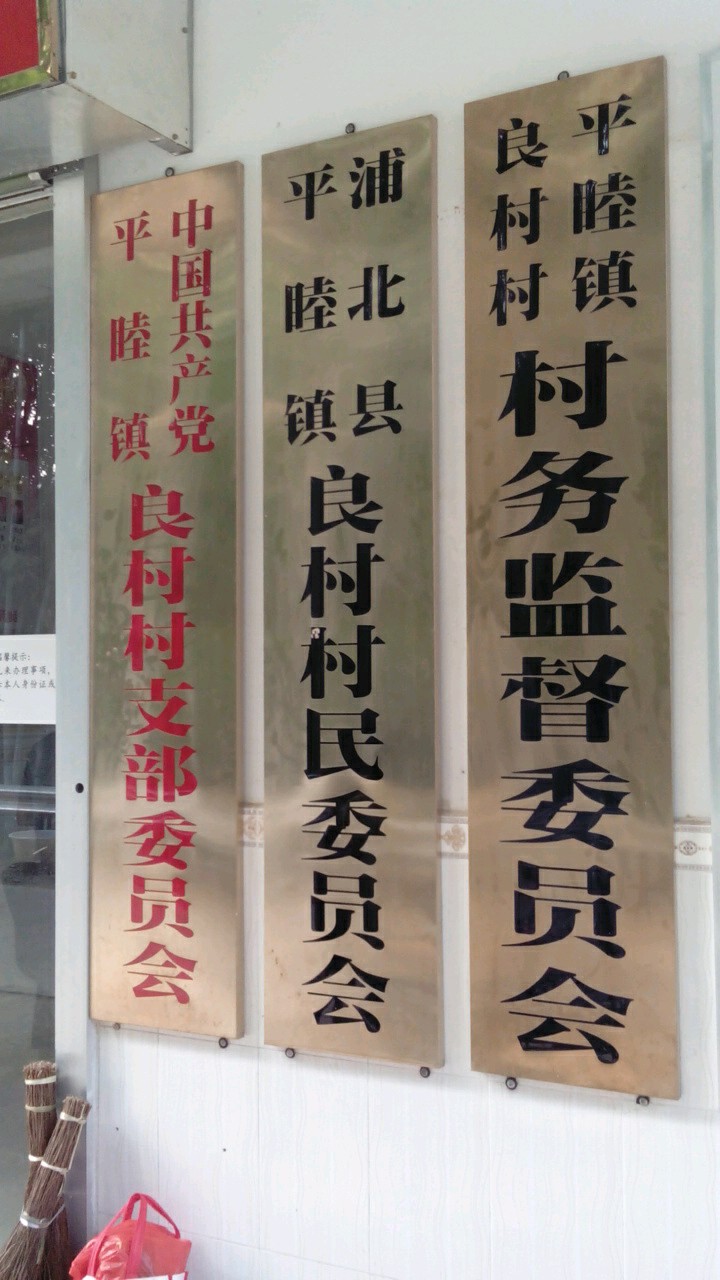 中国共产党
平睦镇
良村村支部委员会
浦北县
平睦镇
良村村民委员会
平睦镇
良村村
村务监督委员会
温馨提示:
来办理事项,
本人身份证或